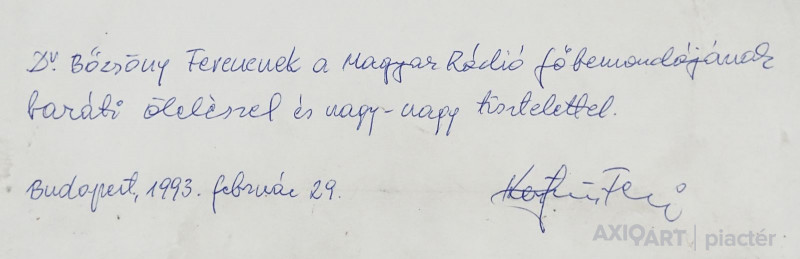 Dr. Bőzsöny Ferencnek a Magyar Rádió főbemondójának
baráti öleléssel és nagy-nagy tisztelettel.
Budapest, 1993. február 29.
AXIOART piactér